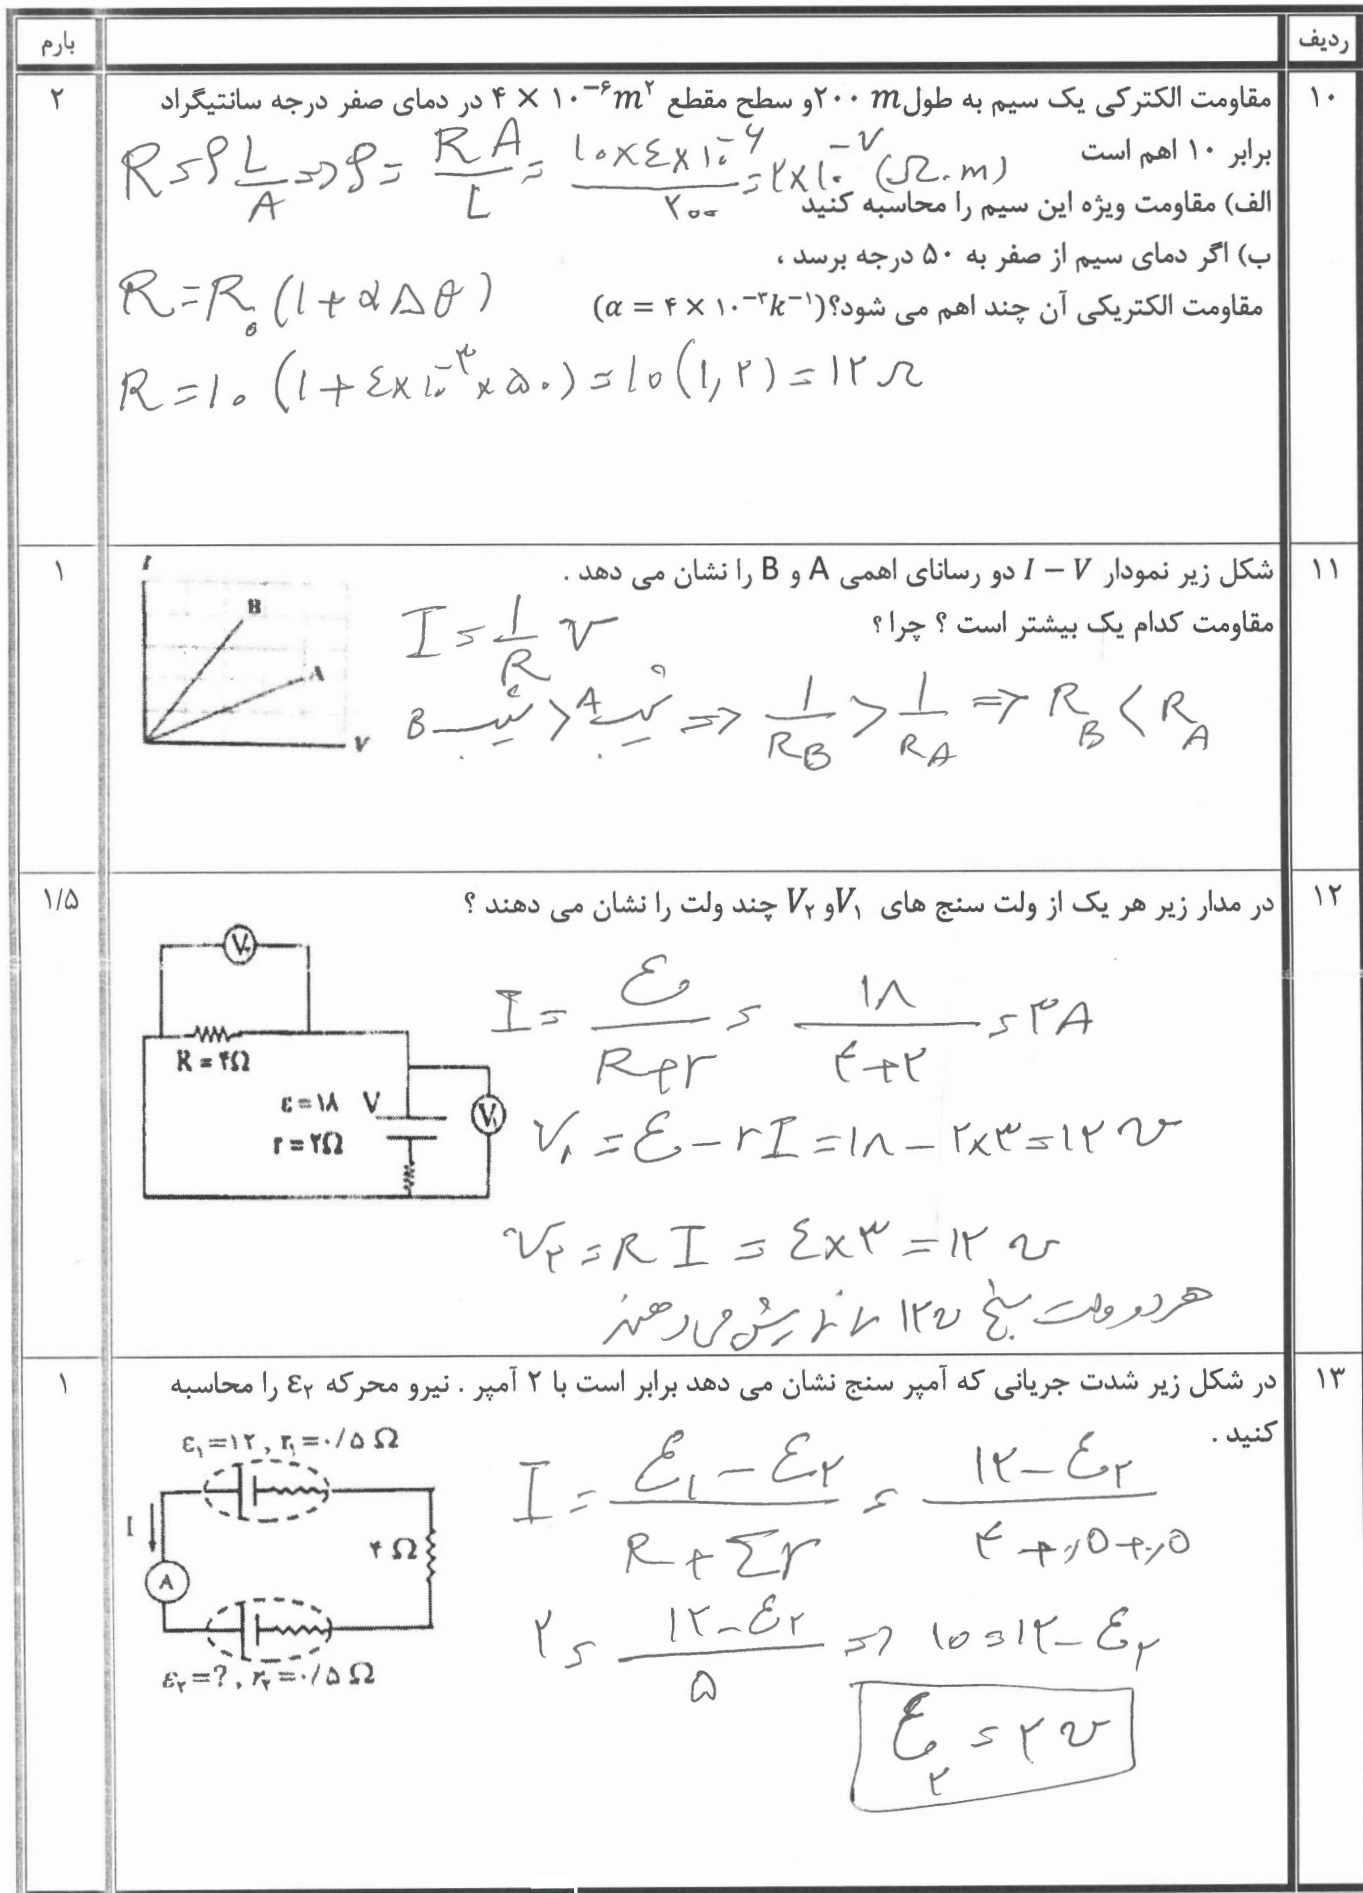 ردیف بارم
۱۰ مقاومت الکترکی یک سیم به طول ۲۰۰ m و سطح مقطع ۴ × ۱۰⁻⁶m² در دمای صفر درجه سانتیگراد ۲
برابر ۱۰ اهم است
R = ρ L/A ⇒ ρ = RA/L = ۱۰×۴×۱۰⁻⁶/۲۰۰ = ۲×۱۰⁻⁷ (Ω.m)
الف) مقاومت ویژه این سیم را محاسبه کنید
ب) اگر دمای سیم از صفر به ۵۰ درجه برسد ،
مقاومت الکتریکی آن چند اهم می شود؟(α = ۴ × ۱۰⁻³k⁻¹)
R = R₀ (1 + α Δθ)
R = ۱۰ (۱ + ۴×۱۰⁻³ × ۵۰) = ۱۰ (۱,۲) = ۱۲ Ω
۱۱ شکل زیر نمودار I − V دو رسانای اهمی A و B را نشان می دهد . ۱
مقاومت کدام یک بیشتر است ؟ چرا ؟
I
B
A
V
I = 1/R V
شیب B > شیب A ⇒ 1/R_B > 1/R_A ⇒ R_B < R_A
۱۲ در مدار زیر هر یک از ولت سنج های V₁ و V₂ چند ولت را نشان می دهند ؟ ۱/۵
V₂
R = ۴Ω
ε = ۱۸ V
r = ۲Ω
V₁
I = ε/(R+r) = ۱۸/(۴+۲) = ۳A
V₁ = ε − rI = ۱۸ − ۲×۳ = ۱۲ v
V₂ = R I = ۴×۳ = ۱۲ v
هر دو ولت سنج ۱۲v را نمایش می دهند
۱۳ در شکل زیر شدت جریانی که آمپر سنج نشان می دهد برابر است با ۲ آمپر . نیرو محرکه ε₂ را محاسبه ۱
کنید .
ε₁ = ۱۲ , r₁ = ۰/۵ Ω
I
۴ Ω
A
ε₂ = ? , r₂ = ۰/۵ Ω
I = (ε₁ − ε₂)/(R + Σr) = (۱۲ − ε₂)/(۴ + ۰,۵ + ۰,۵)
۲ = (۱۲ − ε₂)/۵ ⇒ ۱۰ = ۱۲ − ε₂
ε₂ = ۲ v